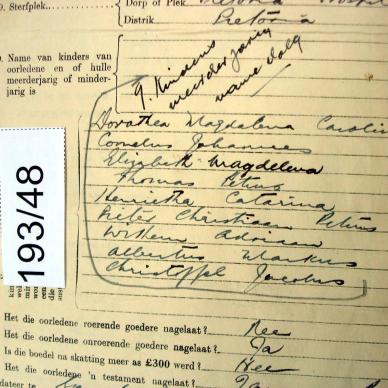 9. Sterfplek
Dorp of Plek Pretoria
Distrik Pretoria
9. Name van kinders van oorledene en of hulle meerderjarig of minderjarig is
9 Kinders
meerderjarig
name volg
Dorothea Magdalena Carolin
Cornelius Johannes
Elizabeth Magdelena
Thomas Petrus
Henrietha Catarina
Pieter Christiaan Petrus
Willem Adriaan
Albertus Markus
Christoffel Jacobus
193/48
Het die oorledene roerende goedere nagelaat? Nee
Het die oorledene onroerende goedere nagelaat? Ja
Is die boedel na skatting meer as £300 werd? Nee
Het die oorledene 'n testament nagelaat? Ja